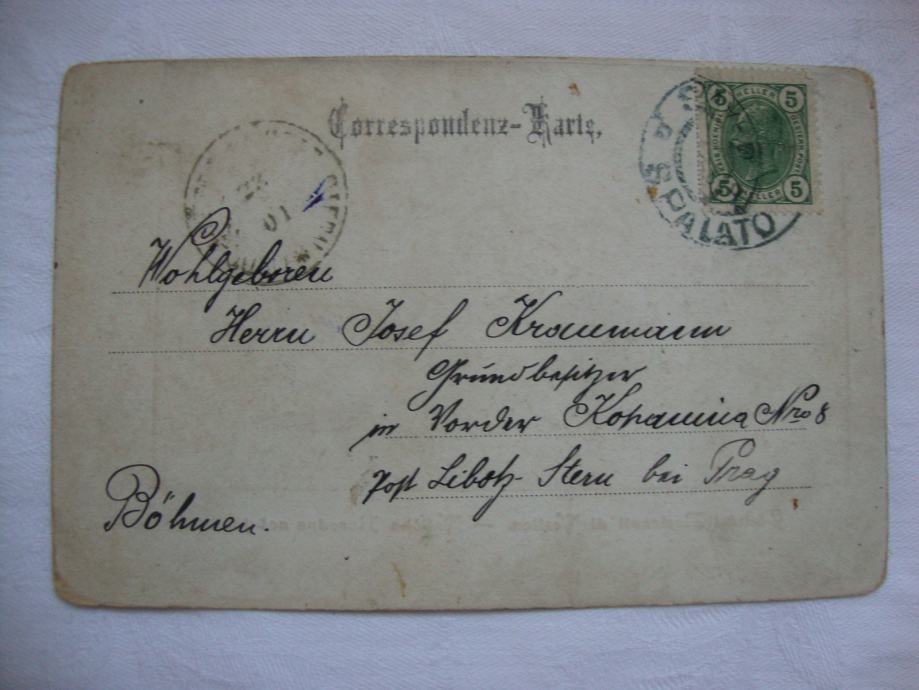 Correspondenz-Karte.
5 HELLER 5
5 HELLER 5
SPALATO
01
Wohlgeboren
Herrn Josef Kraumann
Grundbesitzer
in Vorder Kopanina Nro 8
Post Libotz-Stern bei Prag
Böhmen.